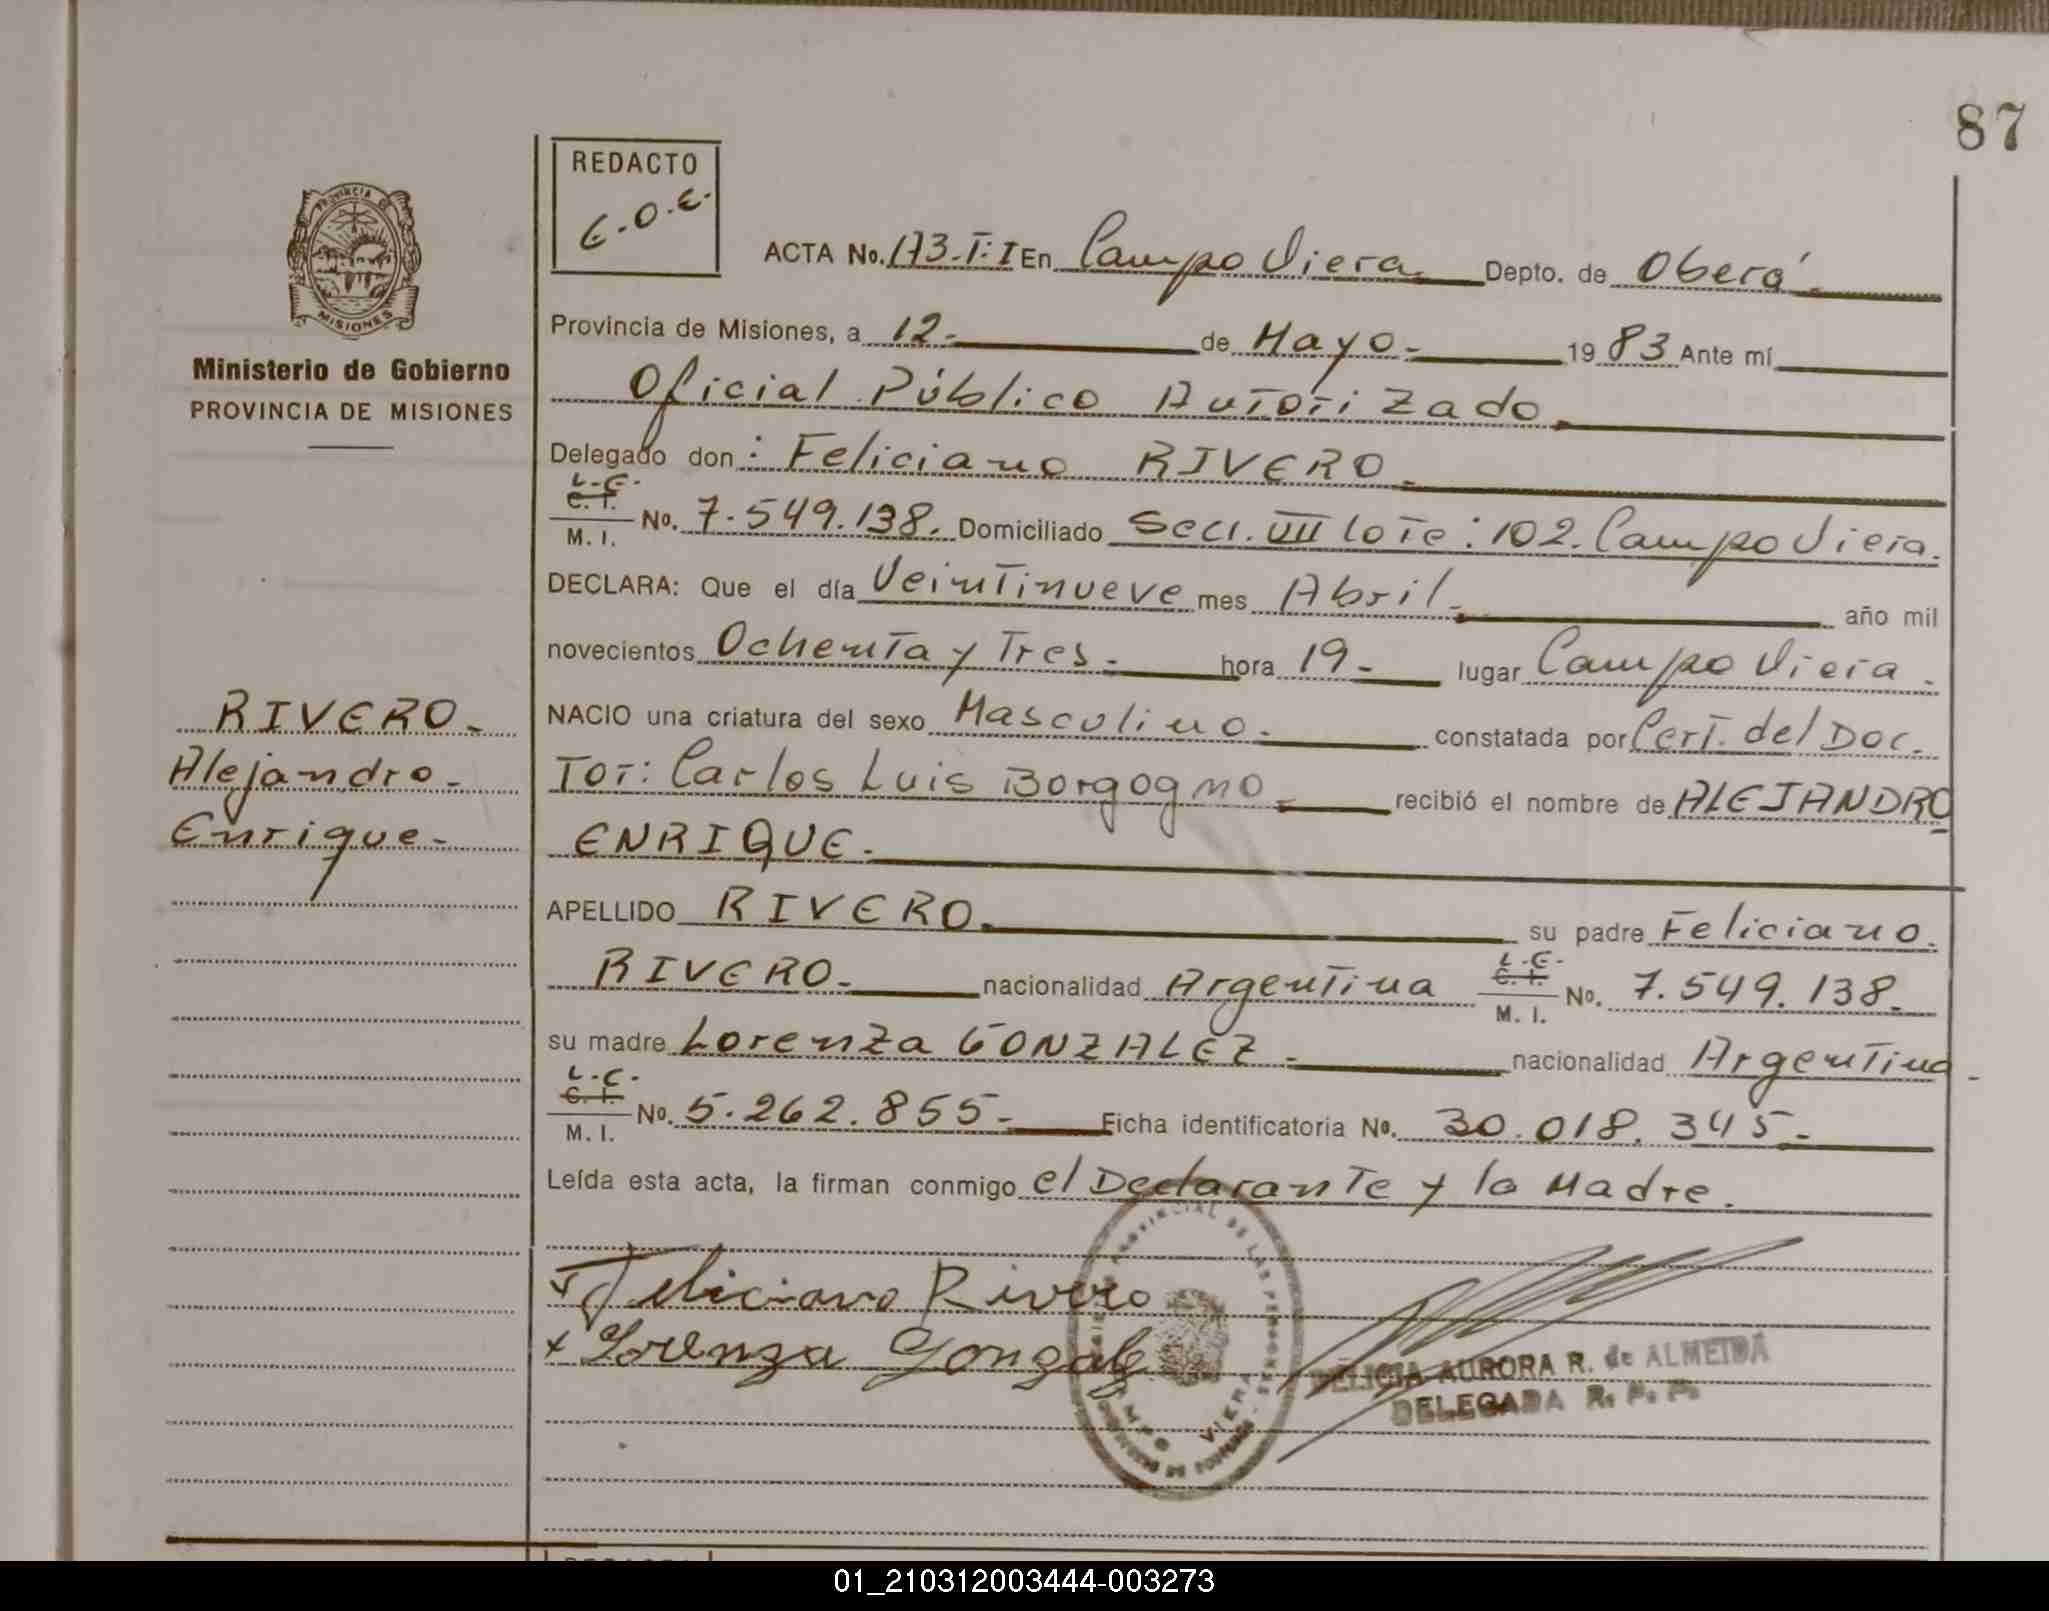 87
REDACTO
E.O.E.
PROVINCIA DE
MISIONES
Ministerio de Gobierno
PROVINCIA DE MISIONES
ACTA No. 173.T:I En Campo Viera. Depto. de Oberá.
Provincia de Misiones, a 12- de Mayo- 1983 Ante mí
Oficial Público Autorizado.
Delegado don: Feliciano RIVERO.
L.E. C. I. M. I. No. 7.549.138. Domiciliado Secc. VIII lote: 102. Campo Viera.
DECLARA: Que el día Veintinueve mes Abril- año mil
novecientos Ochenta y Tres- hora 19- lugar Campo Viera.
NACIO una criatura del sexo Masculino. constatada por Cert. del Doc-
tor: Carlos Luis Borgogno recibió el nombre de ALEJANDRO
ENRIQUE.
APELLIDO RIVERO. su padre Feliciano.
RIVERO. nacionalidad Argentina L.E. C. I. M. I. No. 7.549.138.
su madre Lorenza GONZALEZ. nacionalidad Argentina-
L.C. C. I. M. I. No. 5.262.855- Ficha identificatoria No. 30.018.345-
Leída esta acta, la firman conmigo el Declarante y la Madre.
RIVERO-
Alejandro-
Enrique-
Feliciano Rivero
x Lorenza Gonzalez
PROVINCIAL DE LAS PERSONAS
CAMPO VIERA
FELICIA AURORA R. de ALMEIDA
DELEGADA R. P. P.
01_210312003444-003273